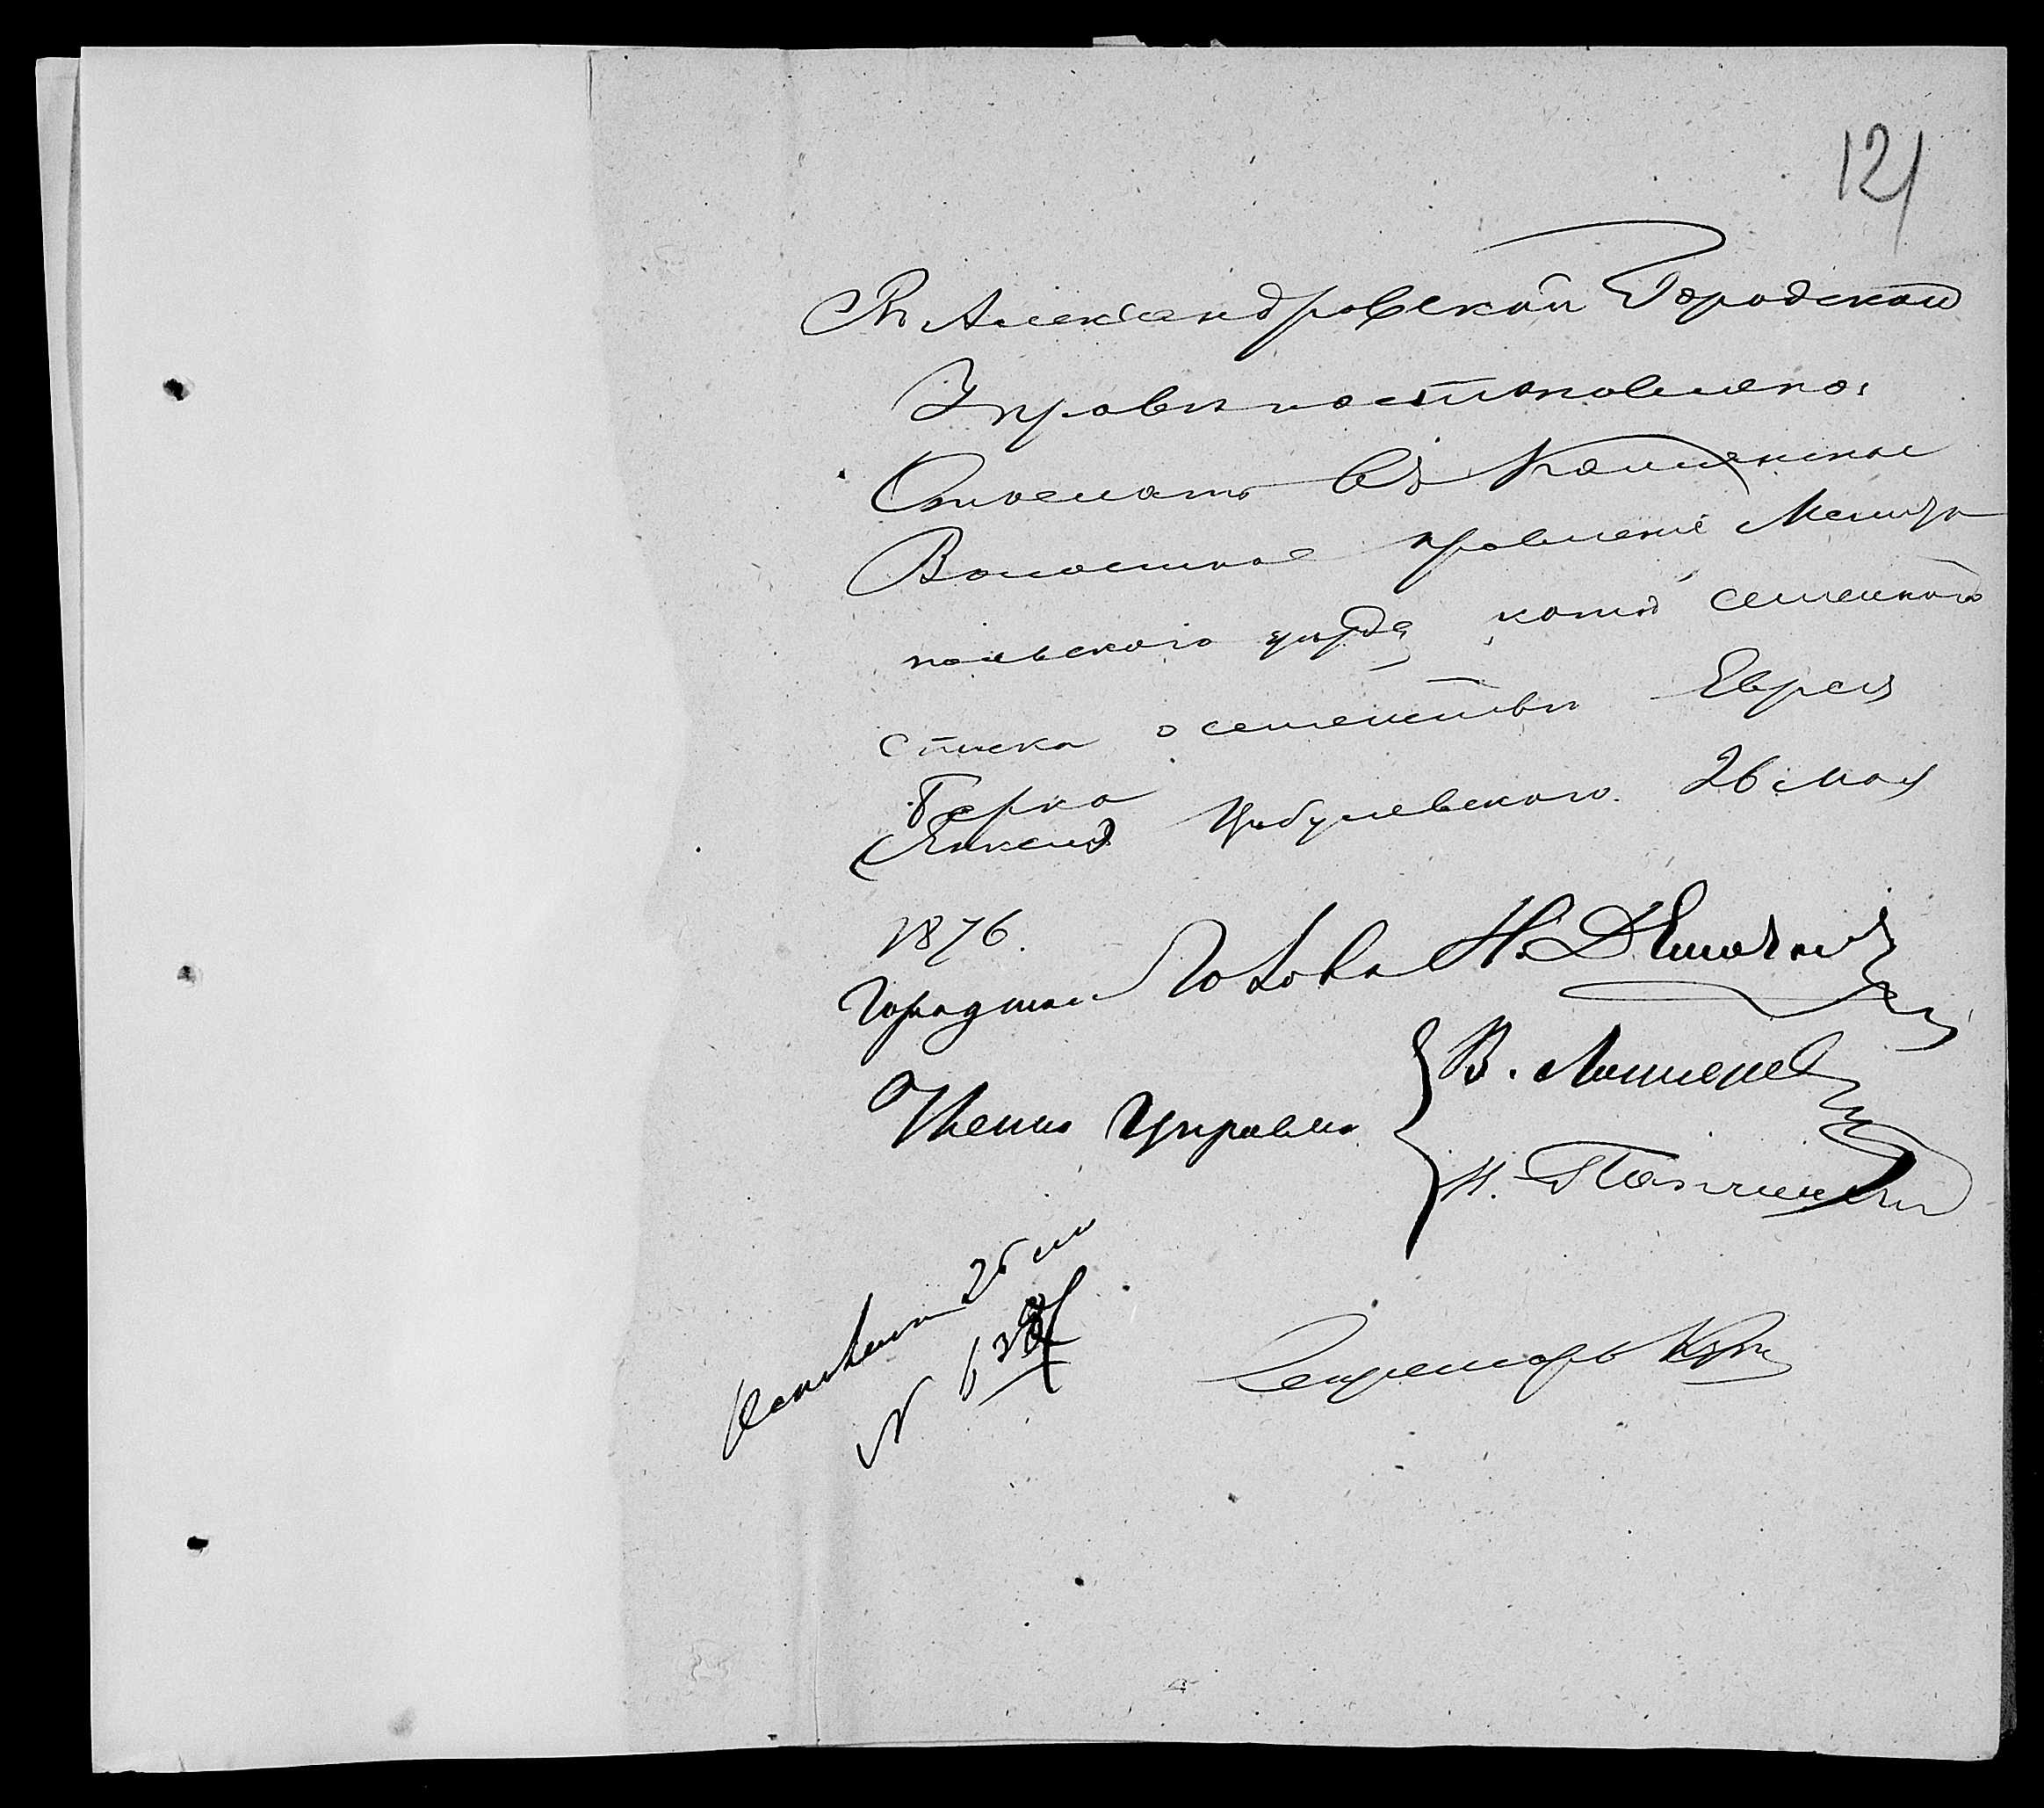 121
Въ Александровской Городской
Управѣ постановлено:
Отослать въ Каменское
Волостное правленіе Мелито
польскаго уѣзда копію семейного
списка о семействѣ Еврея
Берка
Янкеля Цыбулевскаго. 26 мая
1876.
Городской Голова Н.
Члены Управы В.
Н.
Исполнено 26 мая
N
Секретарь